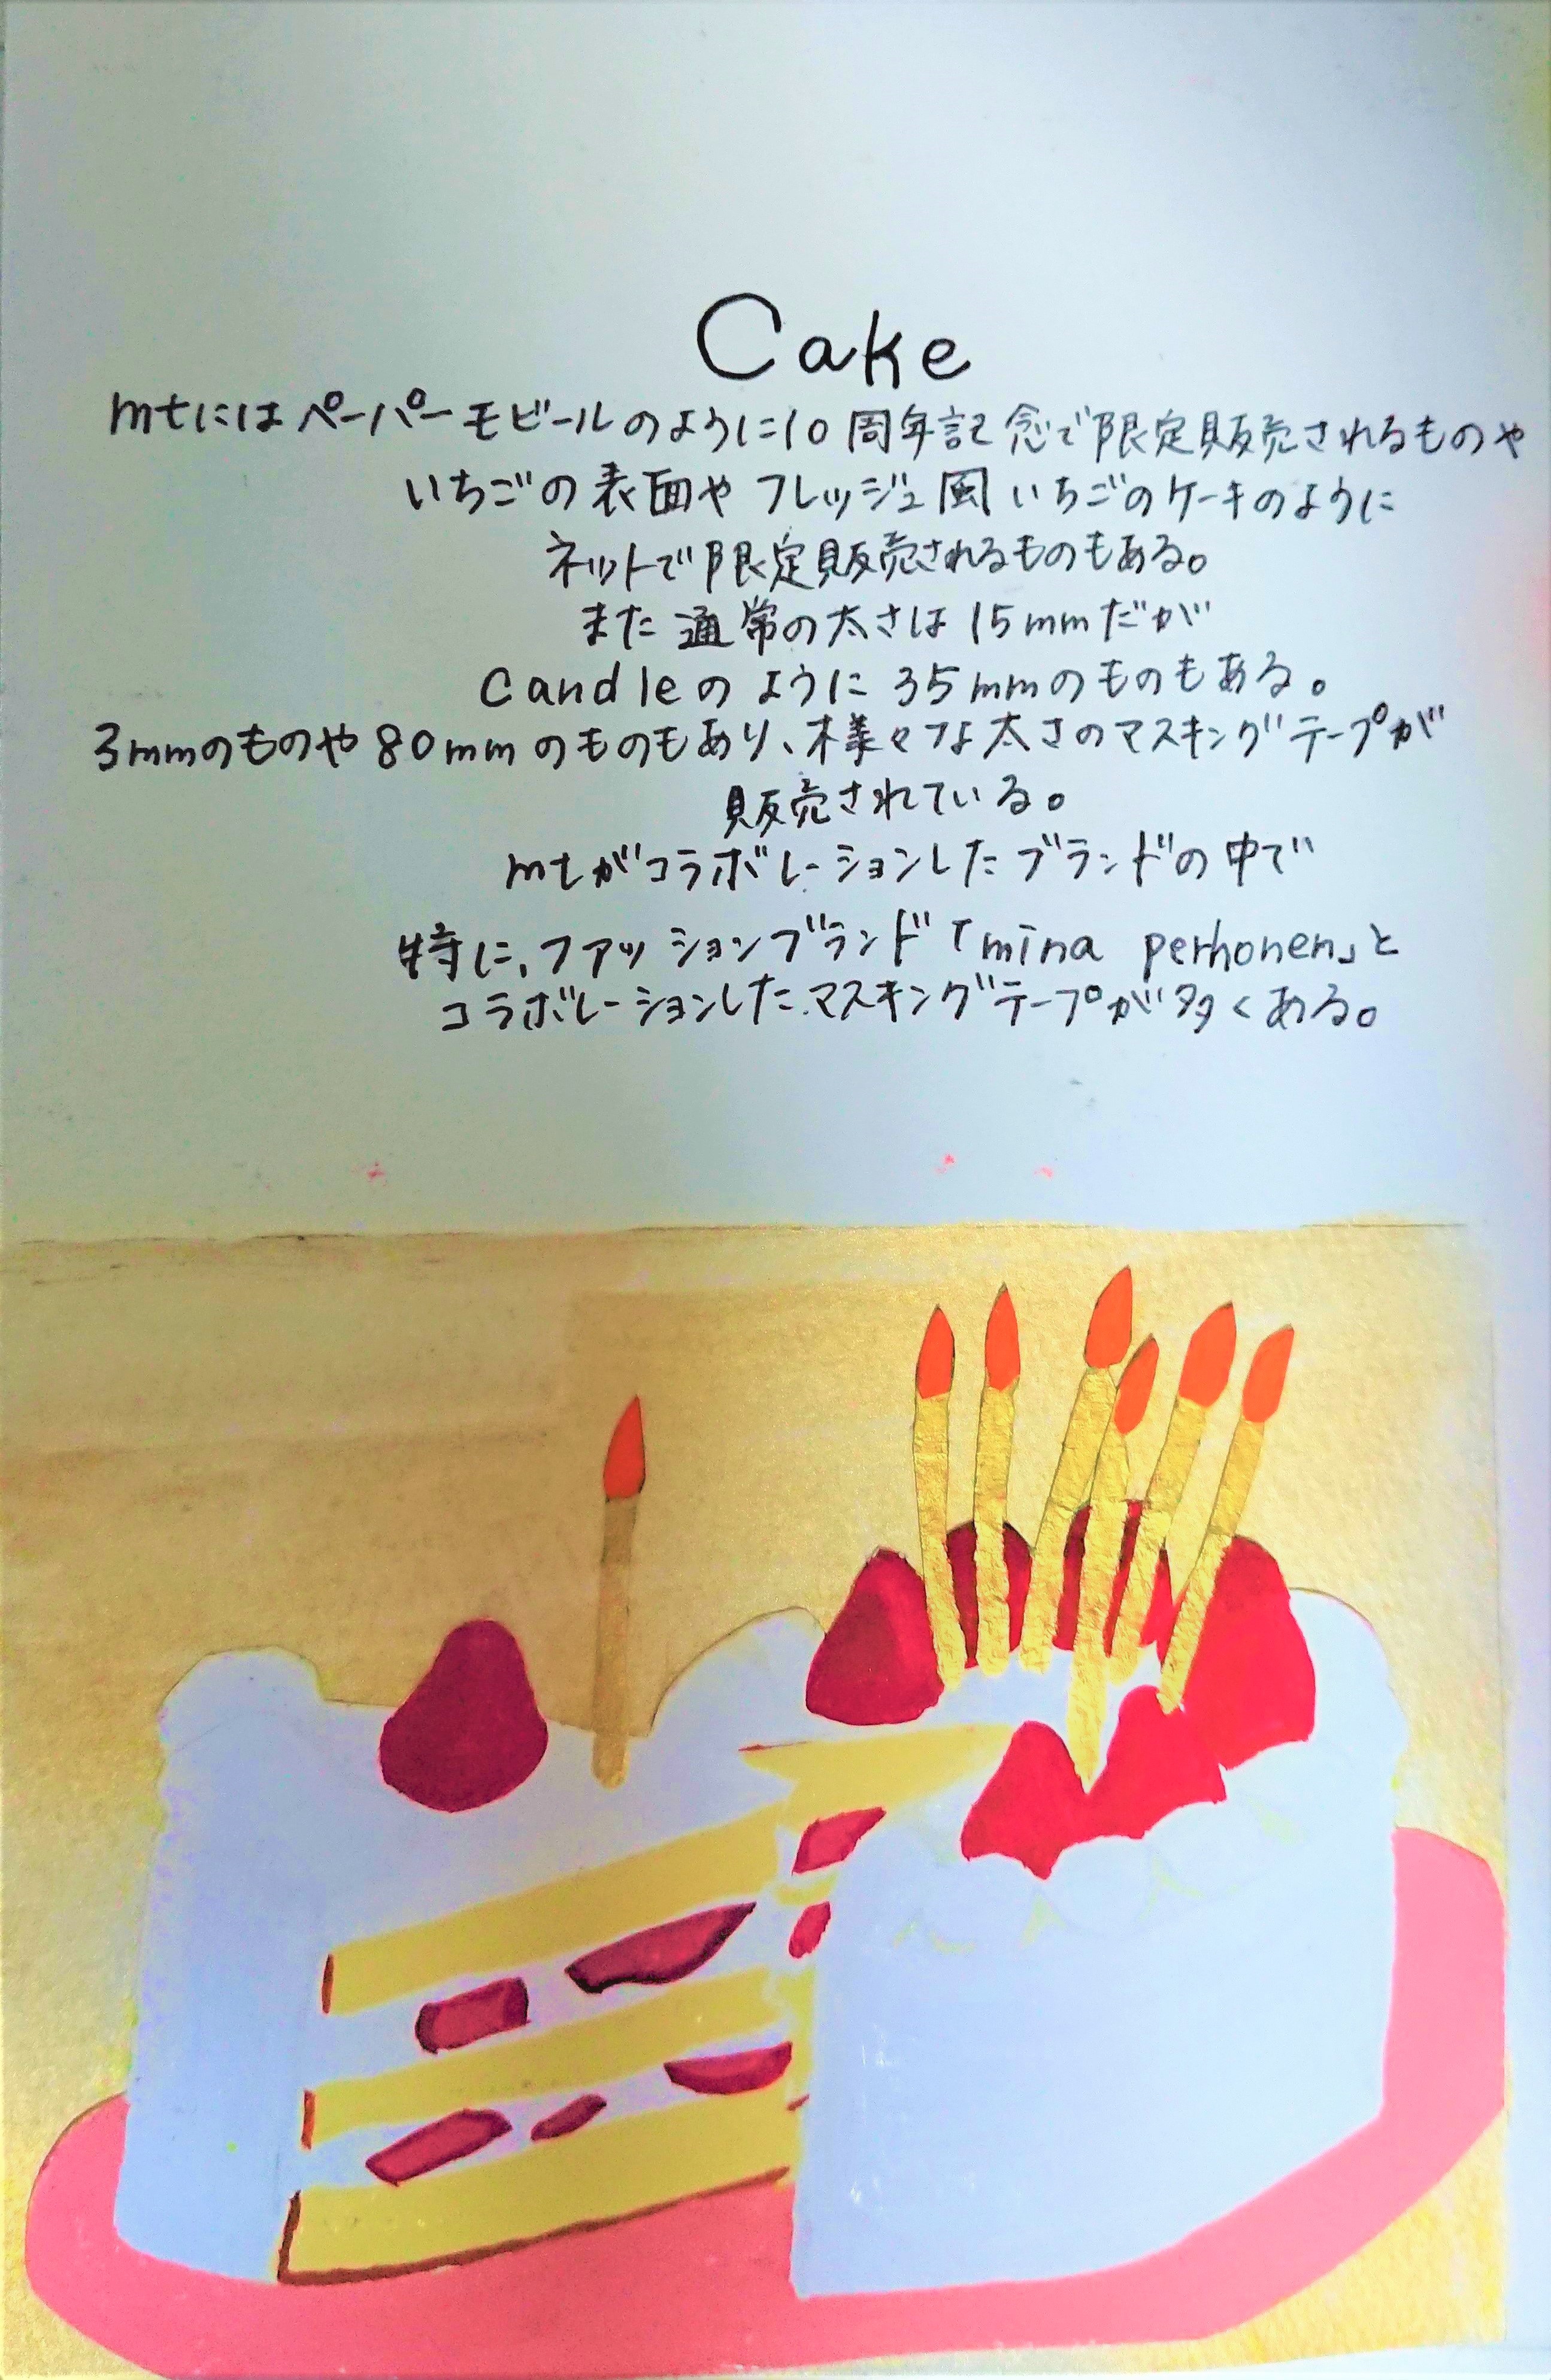 Cake
mtにはペーパーモビールのように10周年記念で限定販売されるものや
いちごの表面やフレッジュ風いちごのケーキのように
ネットで限定販売されるものもある。
また通常の太さは15mmだが
Candleのように35mmのものもある。
3mmのものや80mmのものもあり、様々な太さのマスキングテープが
販売されている。
mtがコラボレーションしたブランドの中で
特に、ファッションブランド「mina perhonen」と
コラボレーションしたマスキングテープが多くある。